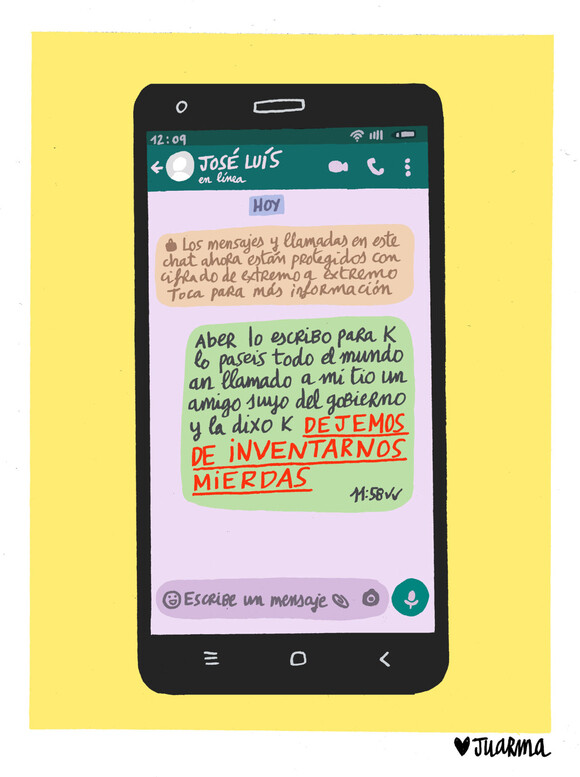 12:09
JOSÉ LUÍS
en línea
HOY
Los mensajes y llamadas en este
chat ahora están protegidos con
cifrado de extremo a extremo
Toca para más información
Aber lo escribo para K
lo paseis todo el mundo
an llamado a mi tio un
amigo suyo del gobierno
y la dixo K DEJEMOS
DE INVENTARNOS
MIERDAS
11:58
Escribe un mensaje
JUARMA